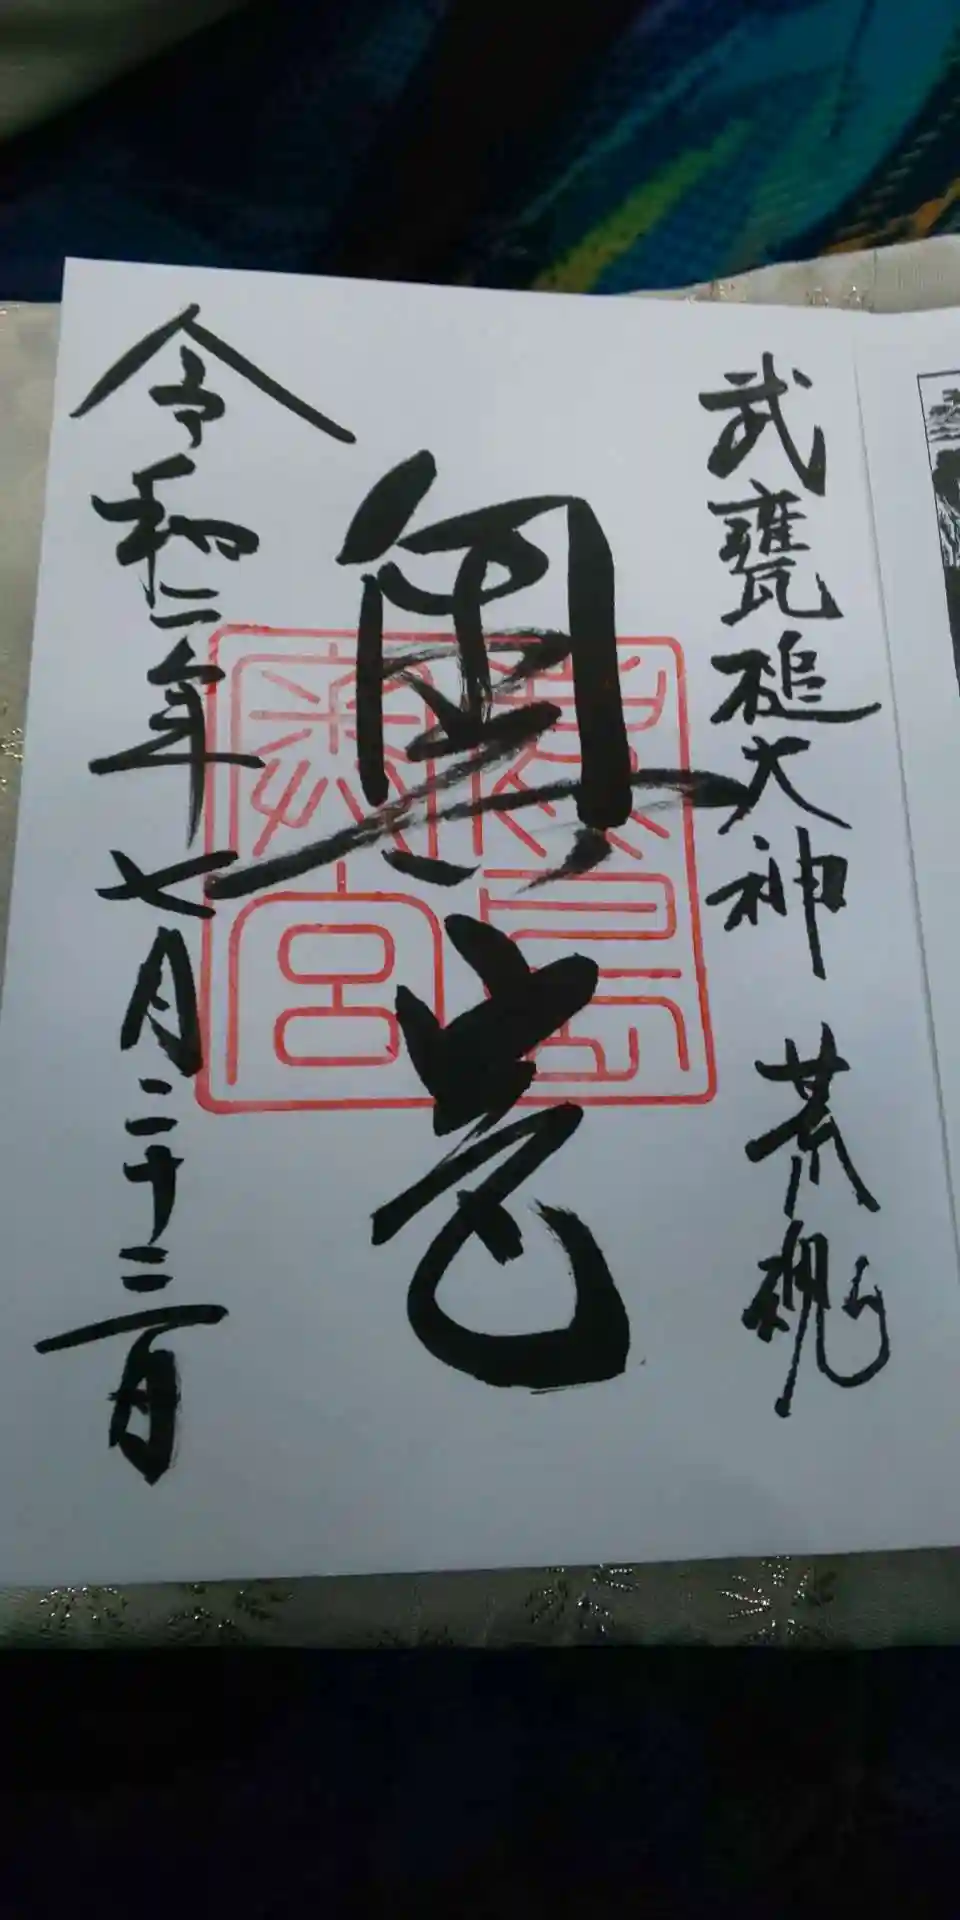 武甕槌大神 荒魂
奥宮
鹿島奥宮
令和二年七月二十三日